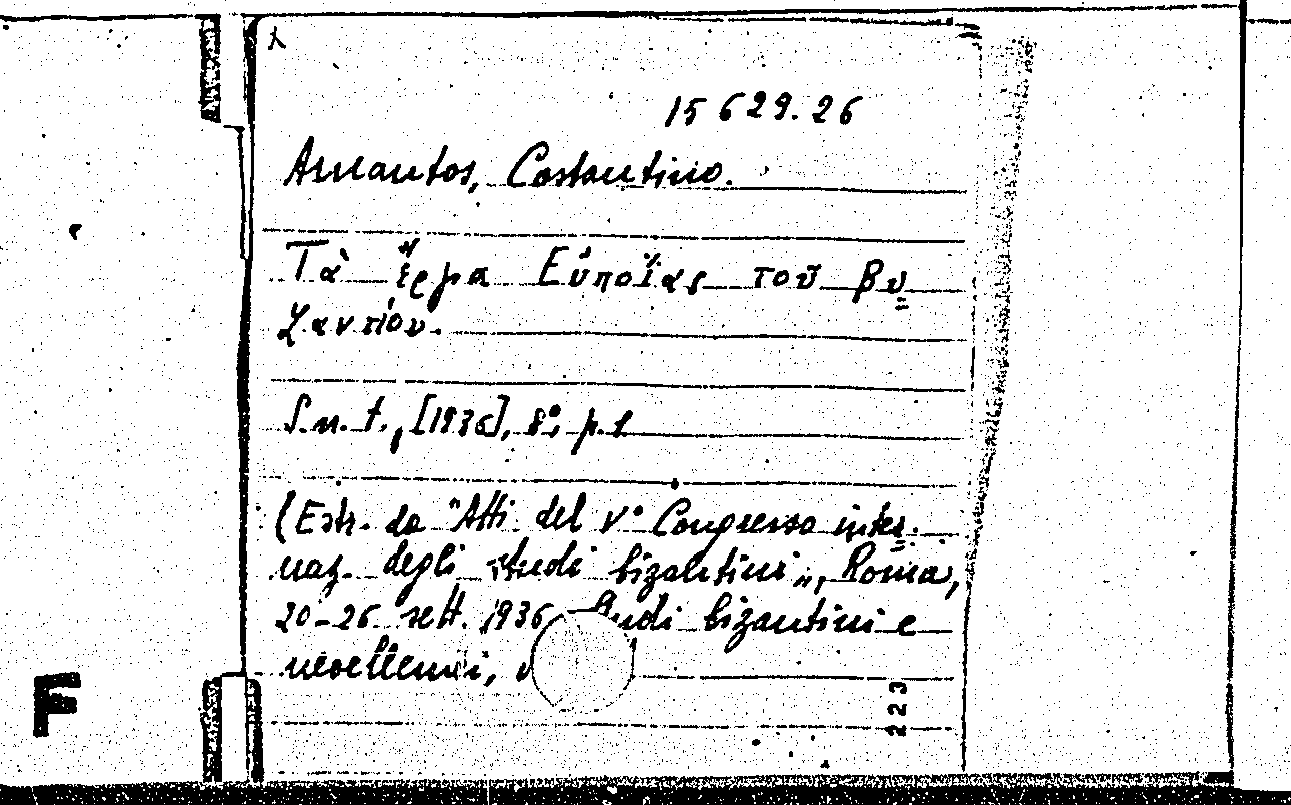 λ
15 629.26
Amantos, Costantino.
Τὰ ἔργα Εὐποΐας τοῦ Βυ
ζαντίου.
S.n.t., [1936], 8°, p.1
(Estr. da "Atti del V° Congresso inter
naz. degli studi bizantini", Roma,
20-26 sett. 1936. Studi bizantini e
neoellenici, v
223
F